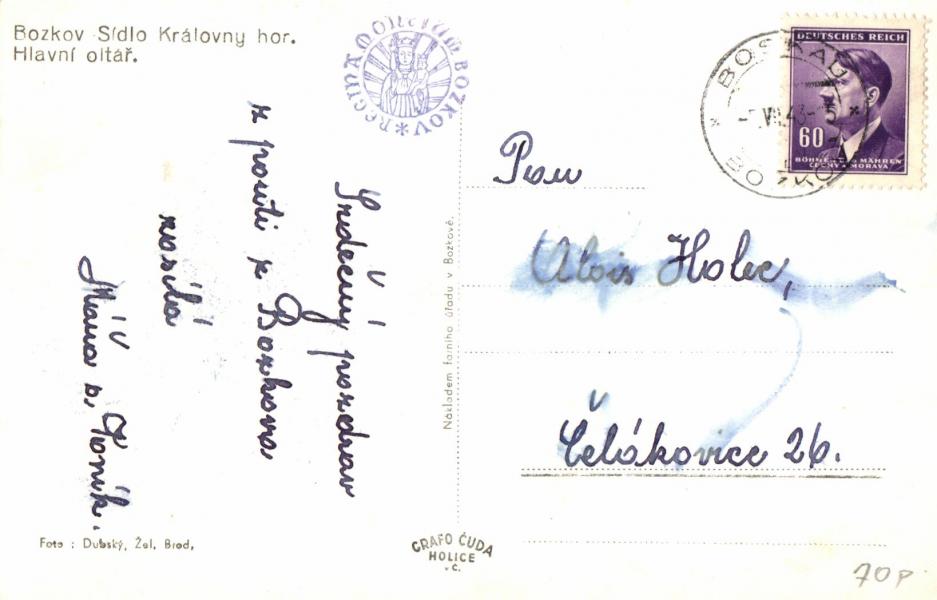 Bozkov - Sídlo Královny hor.
Hlavní oltář.
REGINA MONTIUM BOZKOV *
Srdečný pozdrav
z pouti z Bozkova
zasílá
Máňa a Toník.
Foto : Dubský, Žel. Brod,
Nákladem farního úřadu v Bozkově.
GRAFO ČUDA
HOLICE
v Č.
BOSKAU
BOZKOV
DEUTSCHES REICH
60
BÖHMEN UND MÄHREN
ČECHY A MORAVA
Pan
Alois Holec,
Čelákovice 26.
70p